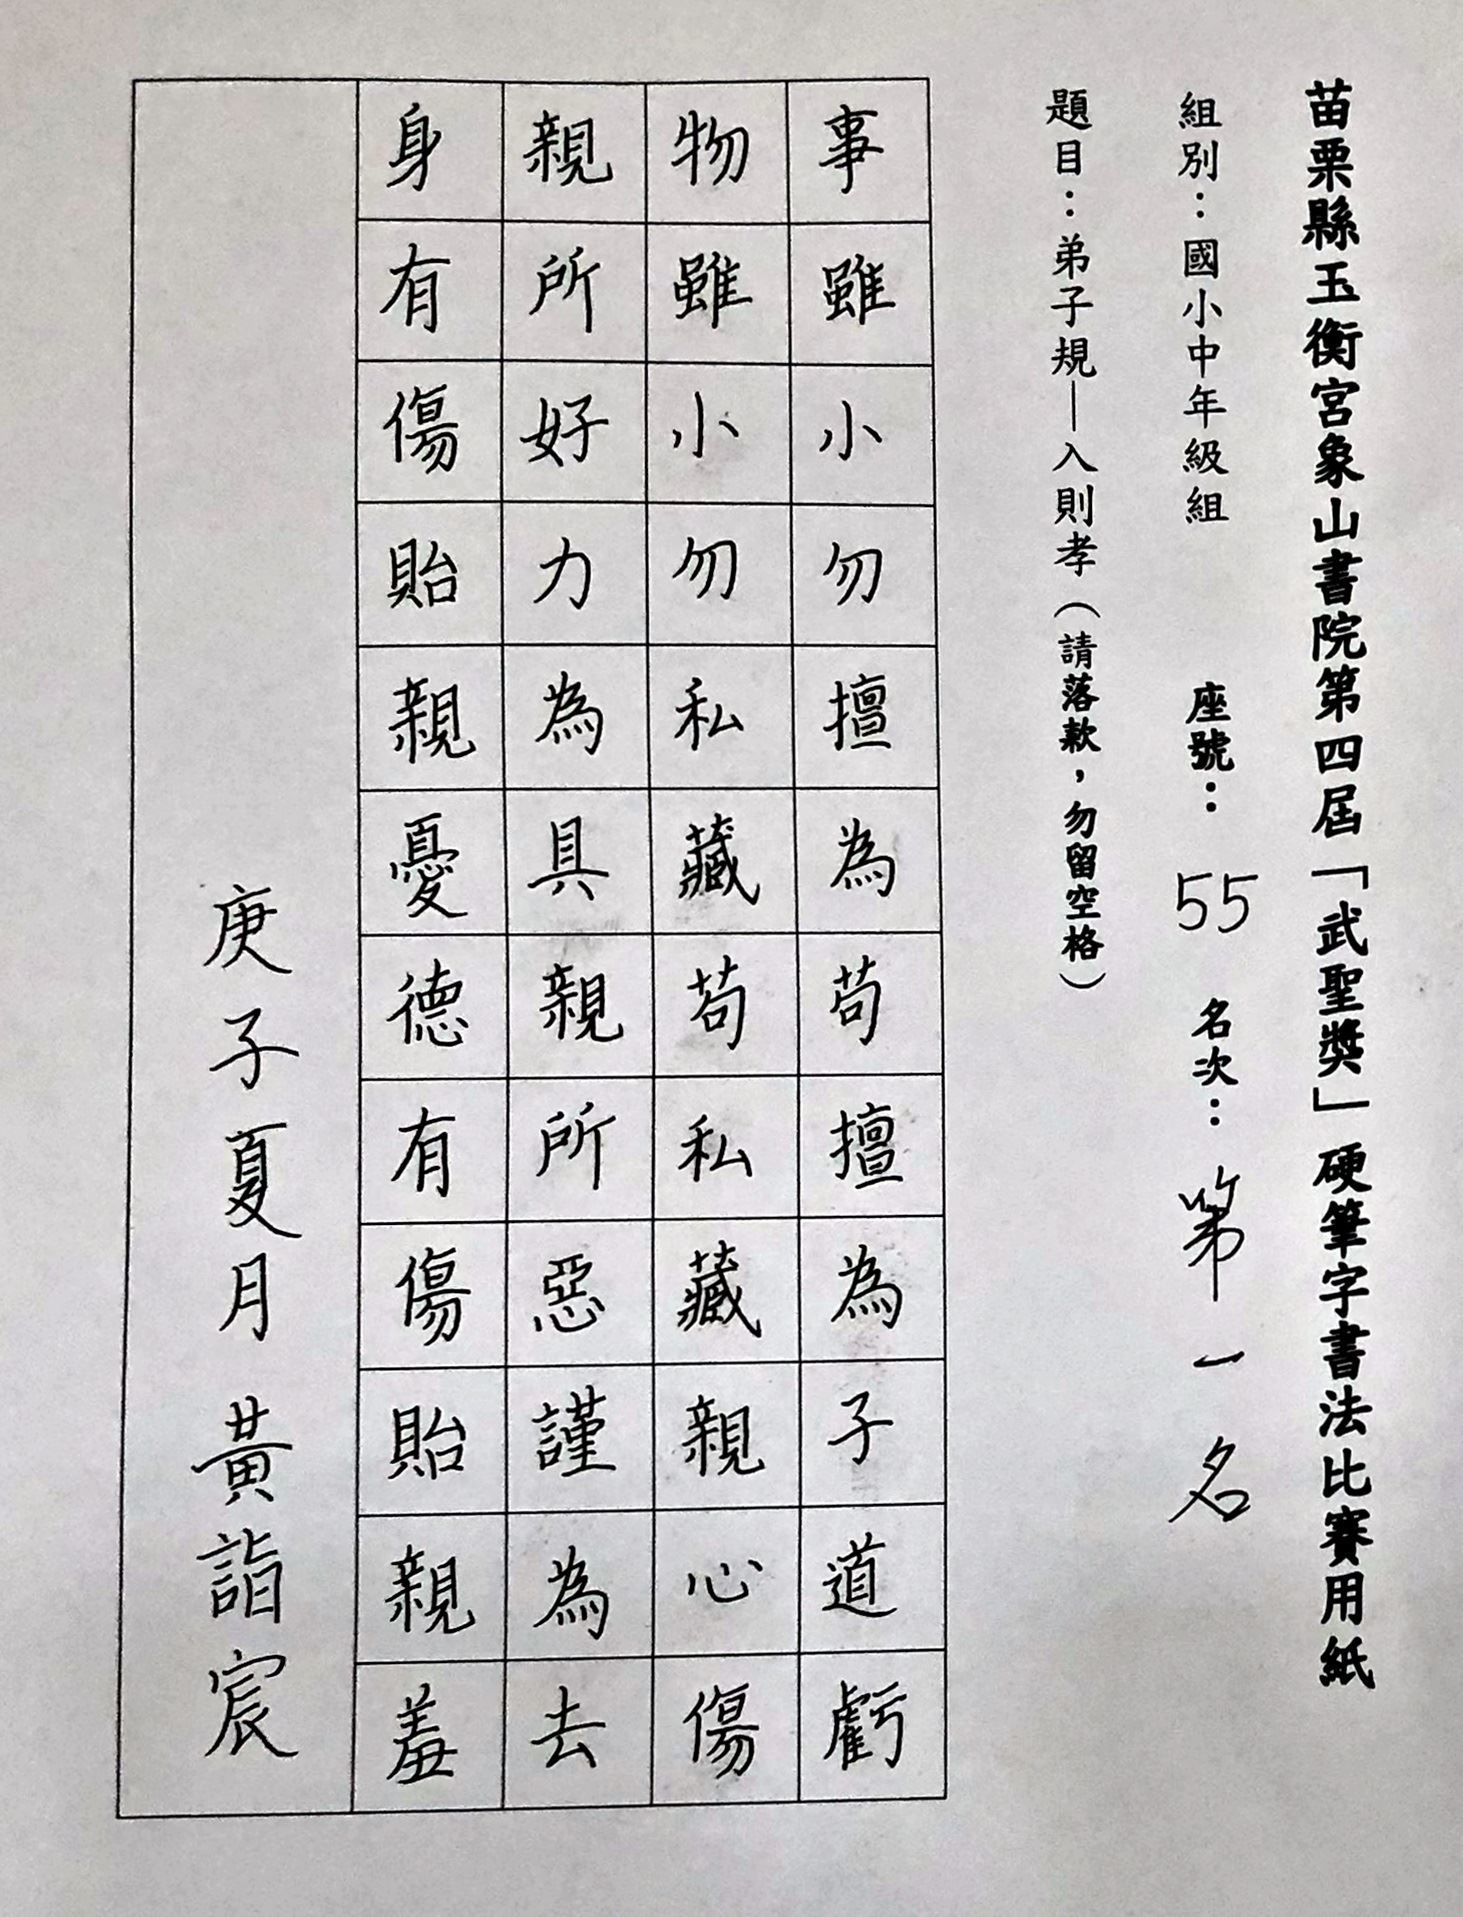 苗栗縣玉衡宮象山書院第四屆「武聖獎」硬筆字書法比賽用紙
組別：國小中年級組 座號：55 名次：第一名
題目：弟子規—入則孝（請落款，勿留空格）
事雖小勿擅為苟擅為子道虧
物雖小勿私藏苟私藏親心傷
親所好力為具親所惡謹為去
身有傷貽親憂德有傷貽親羞
庚子夏月 黃詣宸